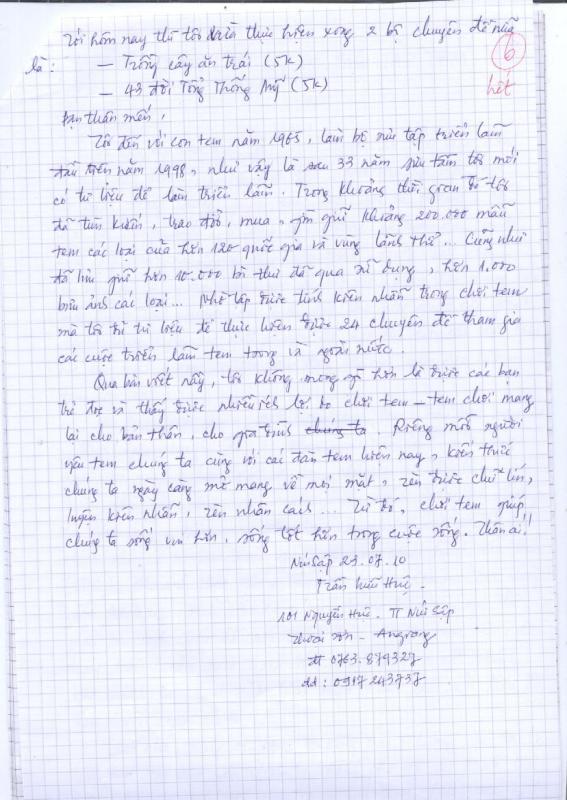 Tới hôm nay thì tôi vừa thực hiện xong 2 bộ chuyên đề nữa
là : — Trồng cây ăn trái (5k)
— 43 đời Tổng Thống Mỹ (5k)
6
hết
Bạn thân mến,
Tôi đến với con tem năm 1965, làm bộ sưu tập triển lãm
đầu tiên năm 1998, như vậy là sau 33 năm sưu tầm tôi mới
có tư liệu để làm triển lãm. Trong khoảng thời gian đó tôi
đã tìm kiếm, trao đổi, mua, gìn giữ khoảng 200.000 mẫu
tem các loại của hơn 120 quốc gia và vùng lãnh thổ... Cũng như
đã lưu giữ hơn 10.000 bì thư đã qua sử dụng, hơn 1.000
bưu ảnh các loại... Nhờ tập được tính kiên nhẫn trong chơi tem
mà tôi có tư liệu để thực hiện được 24 chuyên đề tham gia
các cuộc triển lãm tem trong và ngoài nước.
Qua bài viết nầy, tôi không mong gì hơn là được các bạn
trẻ đọc và thấy được nhiều ích lợi do chơi tem – tem chơi mang
lại cho bản thân, cho gia đình chúng ta. Riêng mỗi người
yêu tem chúng ta cùng với các đàn tem hiện nay, kiến thức
chúng ta ngày càng mở mang về mọi mặt, rèn được chữ tín,
luyện kiên nhẫn, rèn nhân cách... Từ đó, chơi tem giúp
chúng ta sống vui hơn, sống tốt hơn trong cuộc sống. Thân ái!
Núi Sập 23.07.10
Trần Hữu Huệ.
101 Nguyễn Huệ. TT Núi Sập
Thoại Sơn – Angiang
đt 0763.879327
dd : 0917243737